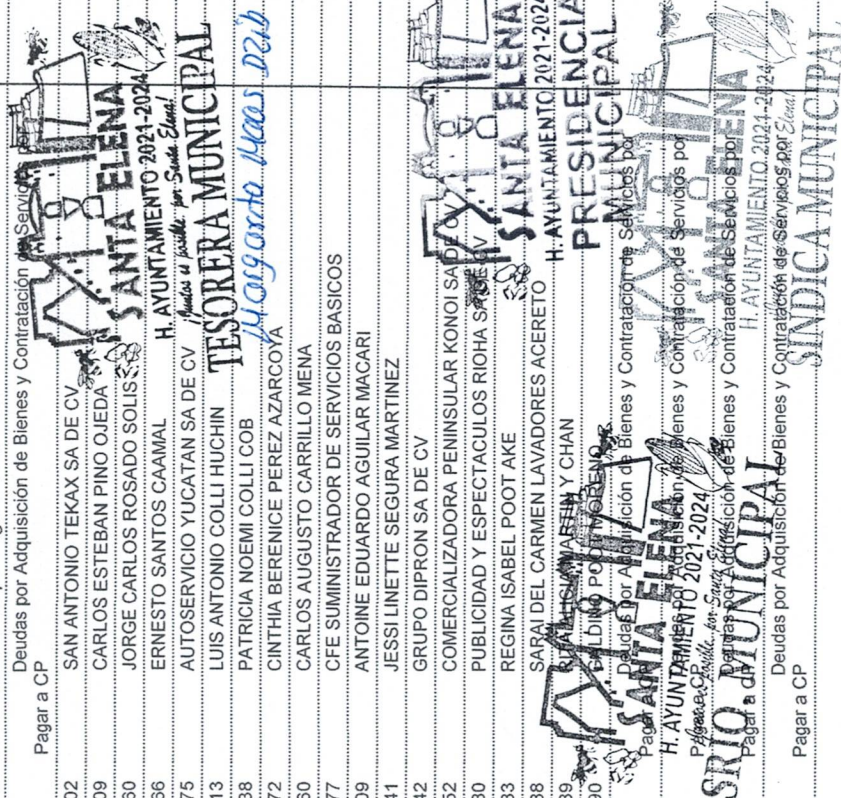 Deudas por Adquisición de Bienes y Contratación de Servicios
Pagar a CP
02 SAN ANTONIO TEKAX SA DE CV
09 CARLOS ESTEBAN PINO OJEDA
60 JORGE CARLOS ROSADO SOLIS
66 ERNESTO SANTOS CAAMAL
75 AUTOSERVICIO YUCATAN SA DE CV
13 LUIS ANTONIO COLLI HUCHIN
38 PATRICIA NOEMI COLLI COB
72 CINTHIA BERENICE PEREZ AZARCOYA
60 CARLOS AUGUSTO CARRILLO MENA
77 CFE SUMINISTRADOR DE SERVICIOS BASICOS
09 ANTOINE EDUARDO AGUILAR MACARI
41 JESSI LINETTE SEGURA MARTINEZ
42 GRUPO DIPRON SA DE CV
52 COMERCIALIZADORA PENINSULAR KONOI SA DE CV
80 PUBLICIDAD Y ESPECTACULOS RIOHA SA DE CV
33 REGINA ISABEL POOT AKE
38 SARAI DEL CARMEN LAVADORES ACERETO
39 MARTIN Y CHAN
90 POOT MORENO
Deudas por Adquisición de Bienes y Contratación de Servicios por
Pagar a CP
Deudas por Adquisición de Bienes y Contratación de Servicios por
Pagar a CP
Deudas por Adquisición de Bienes y Contratación de Servicios por
Pagar a CP
Deudas por Adquisición de Bienes y Contratación de Servicios por
Pagar a CP
SANTA ELENA
H. AYUNTAMIENTO 2021-2024
¡Juntos es posible por Santa Elena!
TESORERA MUNICIPAL
Margarita Maas Dzib
SANTA ELENA
H. AYUNTAMIENTO 2021-2024
PRESIDENCIA
MUNICIPAL
SANTA ELENA
H. AYUNTAMIENTO 2021-2024
SRIO. MUNICIPAL
SANTA ELENA
H. AYUNTAMIENTO 2021-2024
SINDICA MUNICIPAL